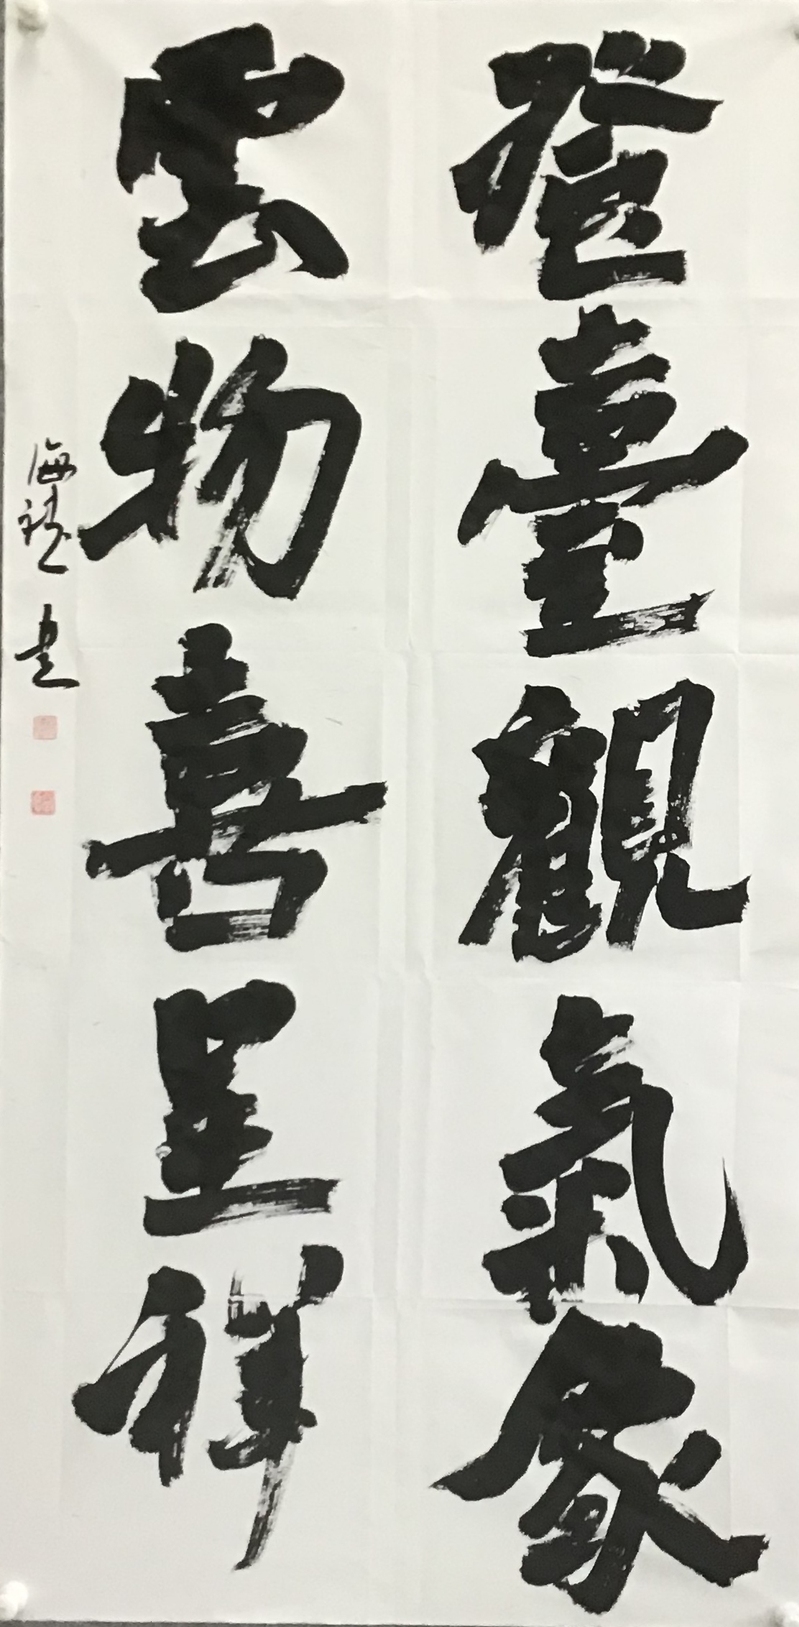 登臺觀氣象
雲物喜呈祥
海龍書